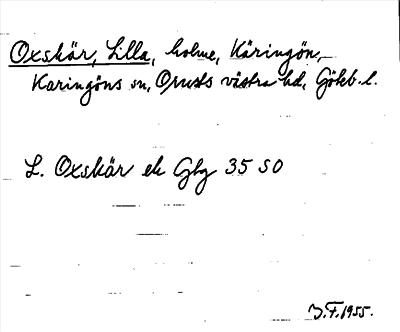 Oxskär, Lilla, holme, Käringön,
Käringöns sn, Orusts västra hd, Göteb. l.
L. Oxskär ek Gbg 35 SO
J.F. 1955.